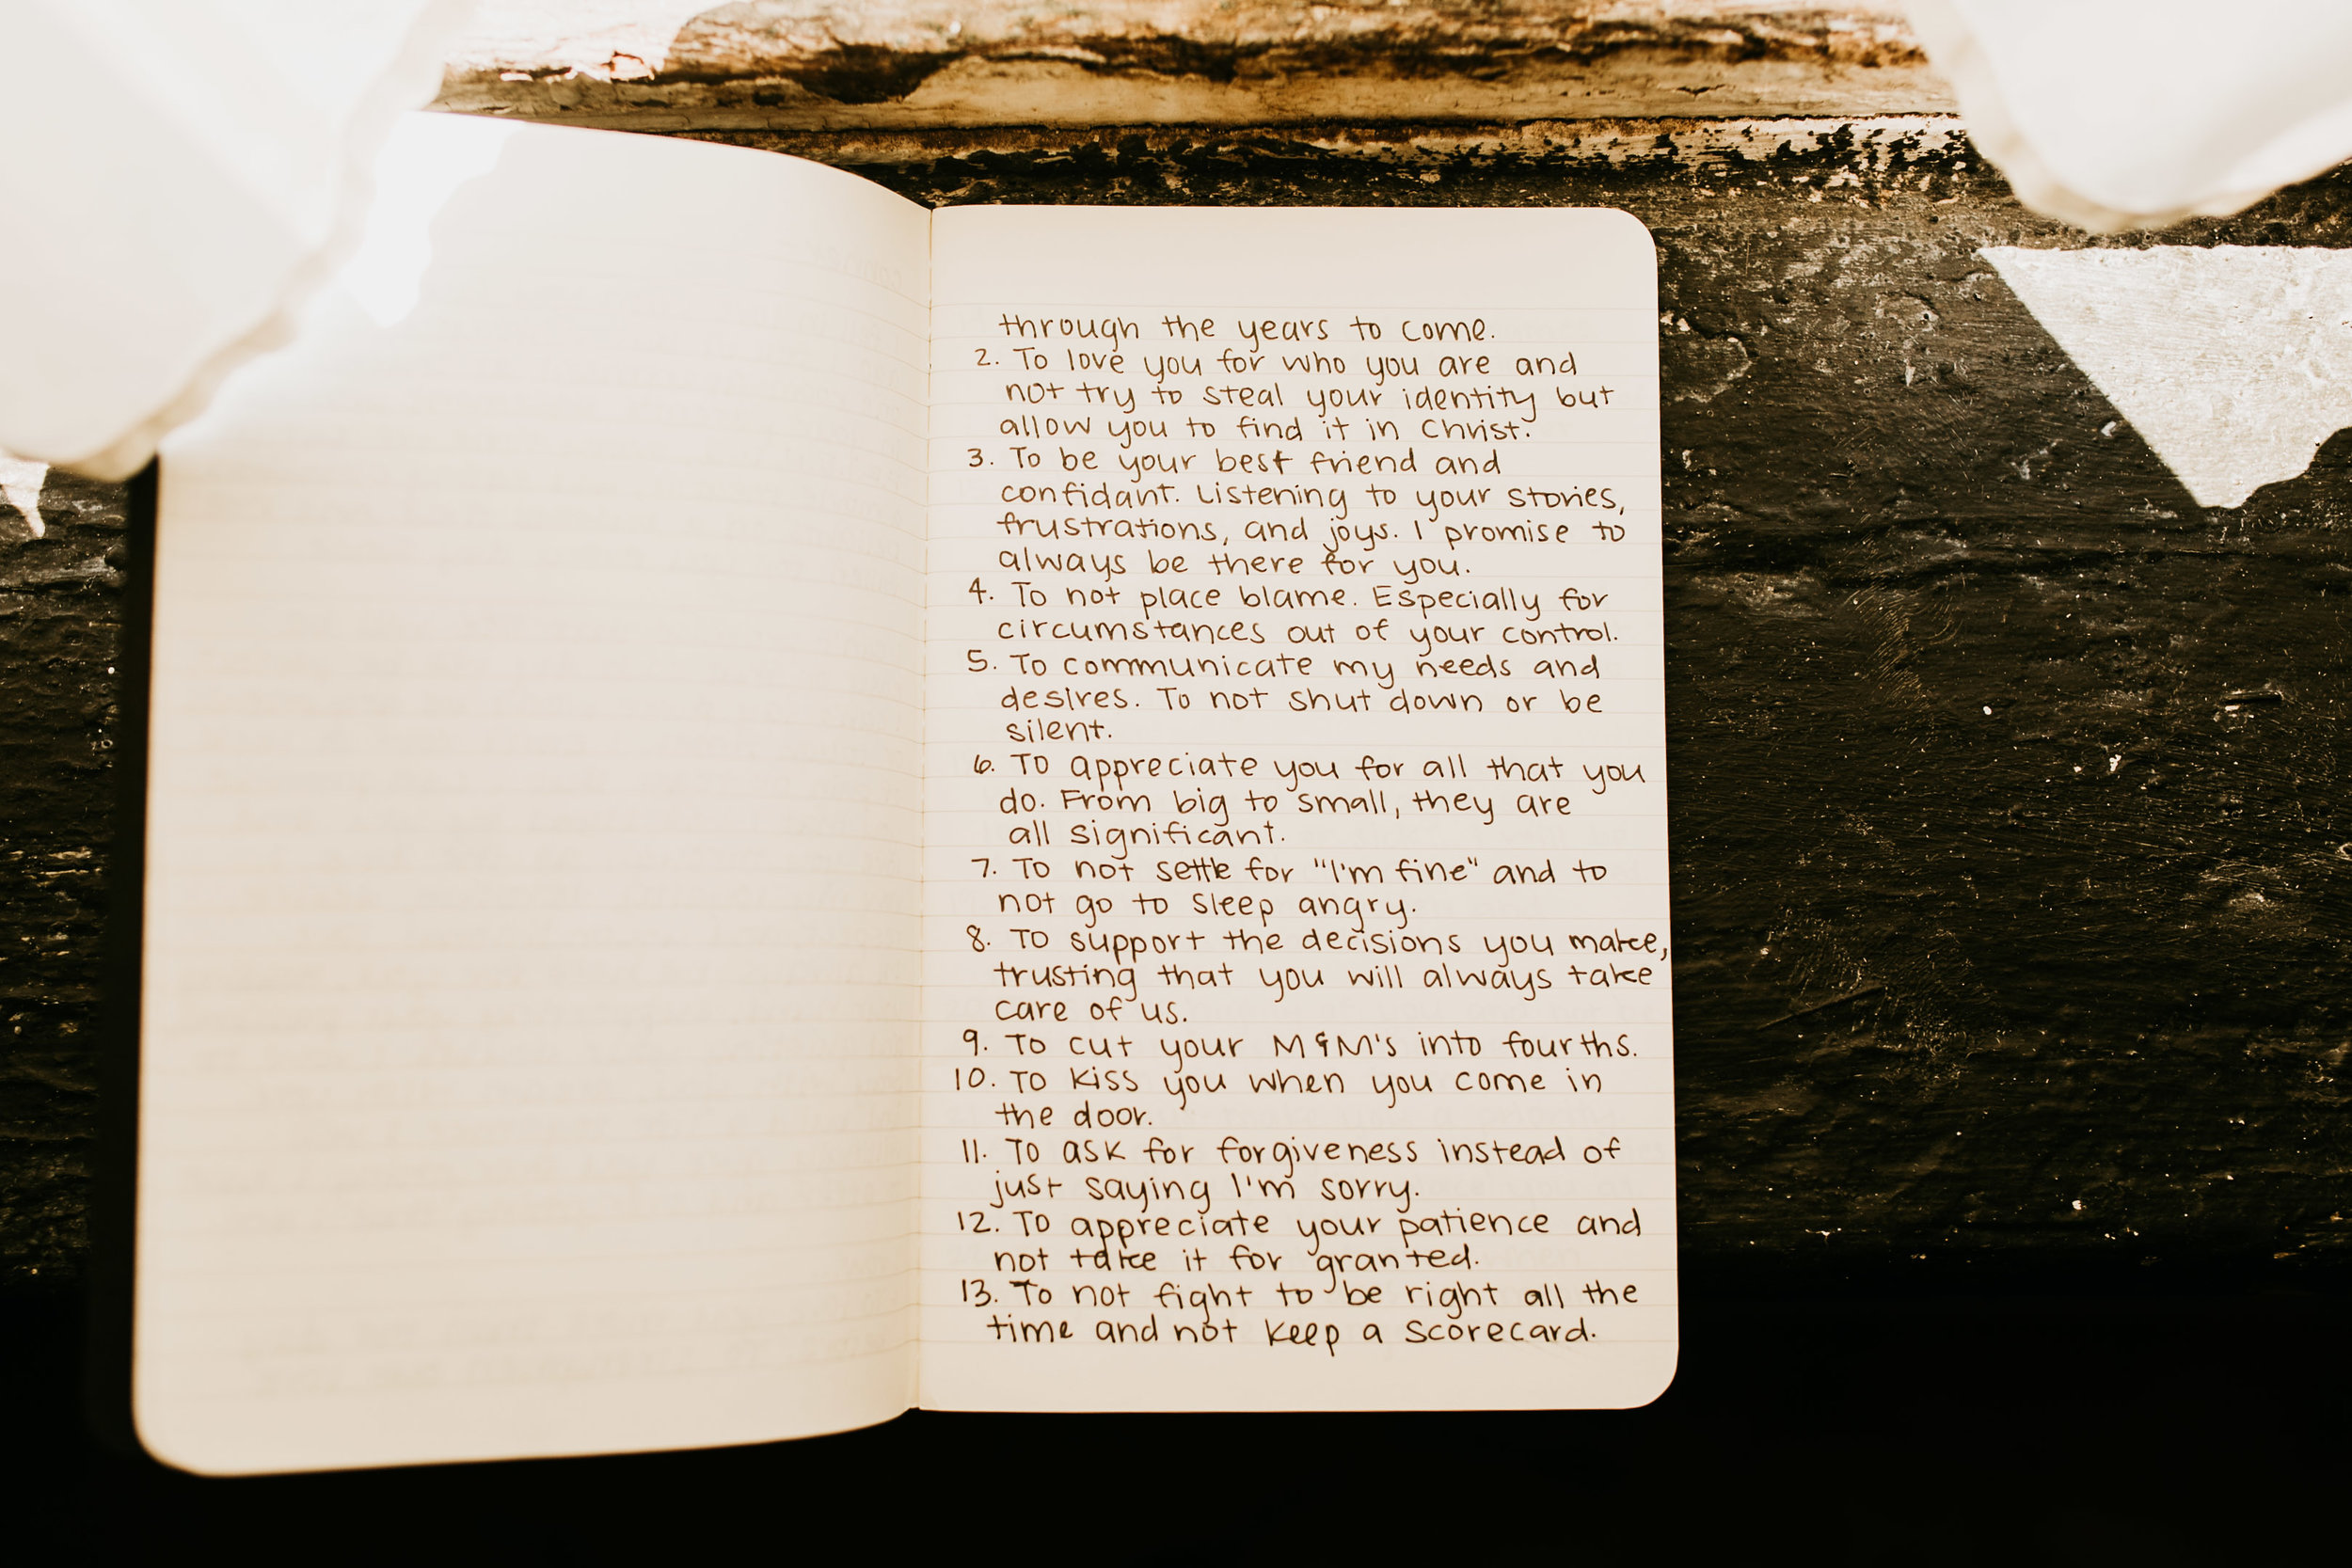 through the years to come.
2. To love you for who you are and
not try to steal your identity but
allow you to find it in Christ.
3. To be your best friend and
confidant. Listening to your stories,
frustrations, and joys. I promise to
always be there for you.
4. To not place blame. Especially for
circumstances out of your control.
5. To communicate my needs and
desires. To not shut down or be
silent.
6. To appreciate you for all that you
do. From big to small, they are
all significant.
7. To not settle for "I'm fine" and to
not go to sleep angry.
8. To support the decisions you make,
trusting that you will always take
care of us.
9. To cut your M&M's into fourths.
10. To kiss you when you come in
the door.
11. To ask for forgiveness instead of
just saying I'm sorry.
12. To appreciate your patience and
not take it for granted.
13. To not fight to be right all the
time and not keep a scorecard.